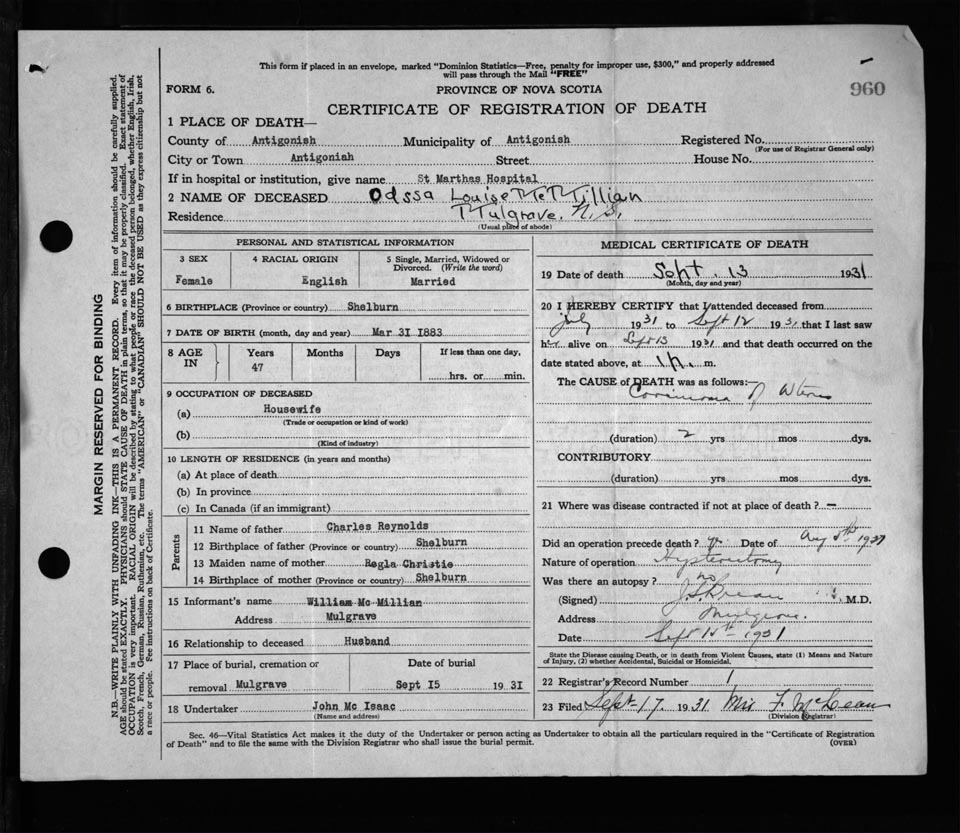 This form if placed in an envelope, marked "Dominion Statistics—Free, penalty for improper use, $300," and properly addressed
will pass through the Mail "FREE"
FORM 6.
PROVINCE OF NOVA SCOTIA
960
CERTIFICATE OF REGISTRATION OF DEATH
1 PLACE OF DEATH—
County of Antigonish Municipality of Antigonish Registered No.
(For use of Registrar General only)
City or Town Antigonish Street House No.
If in hospital or institution, give name St Marthas Hospital
2 NAME OF DECEASED Odssa Louise McMillian
Residence Mulgrave, N.S.
(Usual place of abode)
PERSONAL AND STATISTICAL INFORMATION
3 SEX 4 RACIAL ORIGIN 5 Single, Married, Widowed or
Divorced. (Write the word)
Female English Married
6 BIRTHPLACE (Province or country) Shelburn
7 DATE OF BIRTH (month, day and year) Mar 31 1883
8 AGE IN Years Months Days If less than one day,
47 hrs. or min.
9 OCCUPATION OF DECEASED
(a) Housewife
(Trade or occupation or kind of work)
(b)
(Kind of industry)
10 LENGTH OF RESIDENCE (in years and months)
(a) At place of death
(b) In province
(c) In Canada (if an immigrant)
Parents
11 Name of father Charles Reynolds
12 Birthplace of father (Province or country) Shelburn
13 Maiden name of mother Regla Christie
14 Birthplace of mother (Province or country) Shelburn
15 Informant's name William Mc Millian
Address Mulgrave
16 Relationship to deceased Husband
17 Place of burial, cremation or Date of burial
removal Mulgrave Sept 15 1931
18 Undertaker John Mc Isaac
(Name and address)
MEDICAL CERTIFICATE OF DEATH
19 Date of death Sept. 13 1931
(Month, day and year)
20 I HEREBY CERTIFY that I attended deceased from
July 1931 to Sept 12 1931 that I last saw
her alive on Sept 13 1931 and that death occurred on the
date stated above, at m.
The CAUSE of DEATH was as follows:—
Carcinoma of Uterus
(duration) 2 yrs mos dys.
CONTRIBUTORY
(duration) yrs mos dys.
21 Where was disease contracted if not at place of death? —
Did an operation precede death? Date of Aug
Nature of operation Hysterectomy
Was there an autopsy? no
(Signed) M.D.
Address Mulgrave
Date Sept 1931
State the Disease causing Death, or in death from Violent Causes, state (1) Means and Nature
of Injury, (2) whether Accidental, Suicidal or Homicidal.
22 Registrar's Record Number 1
23 Filed Sept 17 1931 Mrs F McLean
(Division Registrar)
Sec. 46—Vital Statistics Act makes it the duty of the Undertaker or person acting as Undertaker to obtain all the particulars required in the "Certificate of Registration
of Death" and to file the same with the Division Registrar who shall issue the burial permit. (OVER)
MARGIN RESERVED FOR BINDING
N.B.—WRITE PLAINLY WITH UNFADING INK—THIS IS A PERMANENT RECORD. Every item of information should be carefully supplied.
AGE should be stated EXACTLY. PHYSICIANS should STATE CAUSE OF DEATH in plain terms, so that it may be properly classified. Exact statement of
OCCUPATION is very important. RACIAL ORIGIN will be described by stating to what people or race the deceased person belonged, whether English, Irish,
Scotch, French, German, Russian, Ruthenian, etc. The terms "AMERICAN" or "CANADIAN" SHOULD NOT BE USED as they express citizenship but not
a race or people. See instructions on back of Certificate.